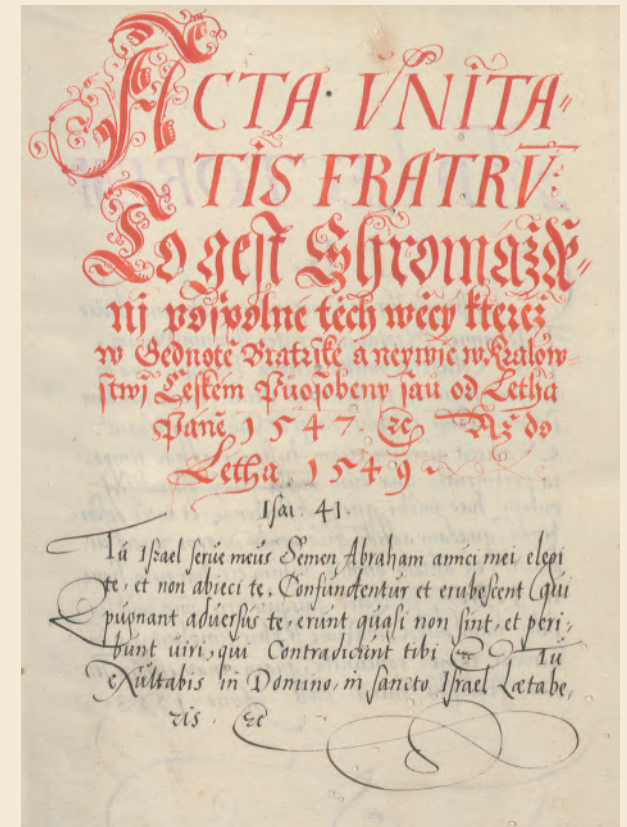 ACTA · VNITA〃
TIS FRATRV̄:
To gest Shromáždě〃
nj pospolné těch wěcý kteréž
w Gednotě Bratrské a neywjc w Králow〃
stwj Českém Puosobeny sau od Letha
Páně 1547. &c Až do
Letha 1549
Isai. 41.
Tu Israel serue meus Semen Abraham amici mei, elegi
te, et non abieci te, Confundentur et erubescent qui
pugnant adversus te, erunt quasi non sint, et peri-
bunt uiri, qui Contradicunt tibi &c Tu
eXultabis in Domino, in sancto Israel Lætabe,
ris. &c